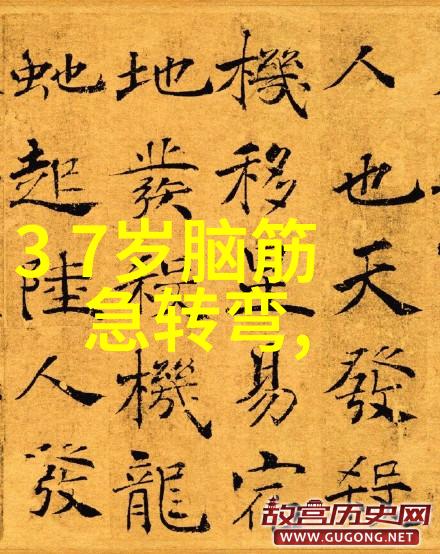 人也天發殺
機移星易宿
地發殺機龍
虵起陸人發
3 7岁脑筋
急转弯,
故宫历史网
WWW.GUGONG.NET